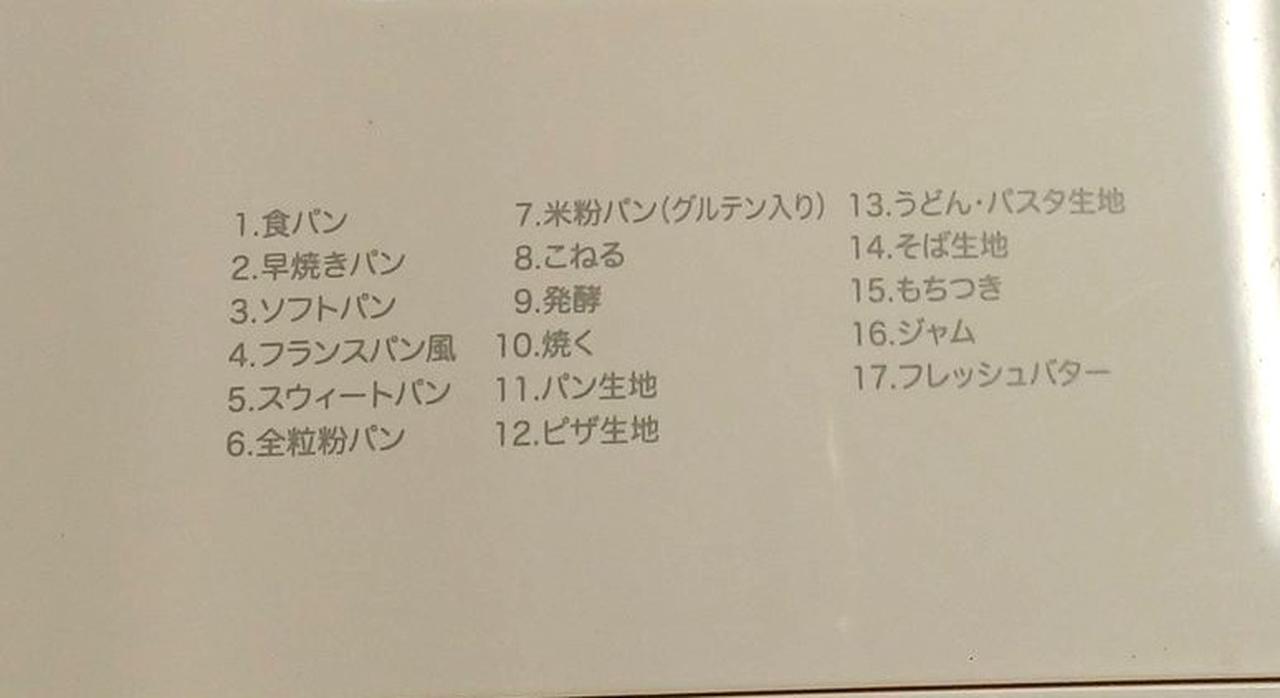 1.食パン
2.早焼きパン
3.ソフトパン
4.フランスパン風
5.スウィートパン
6.全粒粉パン
7.米粉パン(グルテン入り)
8.こねる
9.発酵
10.焼く
11.パン生地
12.ピザ生地
13.うどん・パスタ生地
14.そば生地
15.もちつき
16.ジャム
17.フレッシュバター